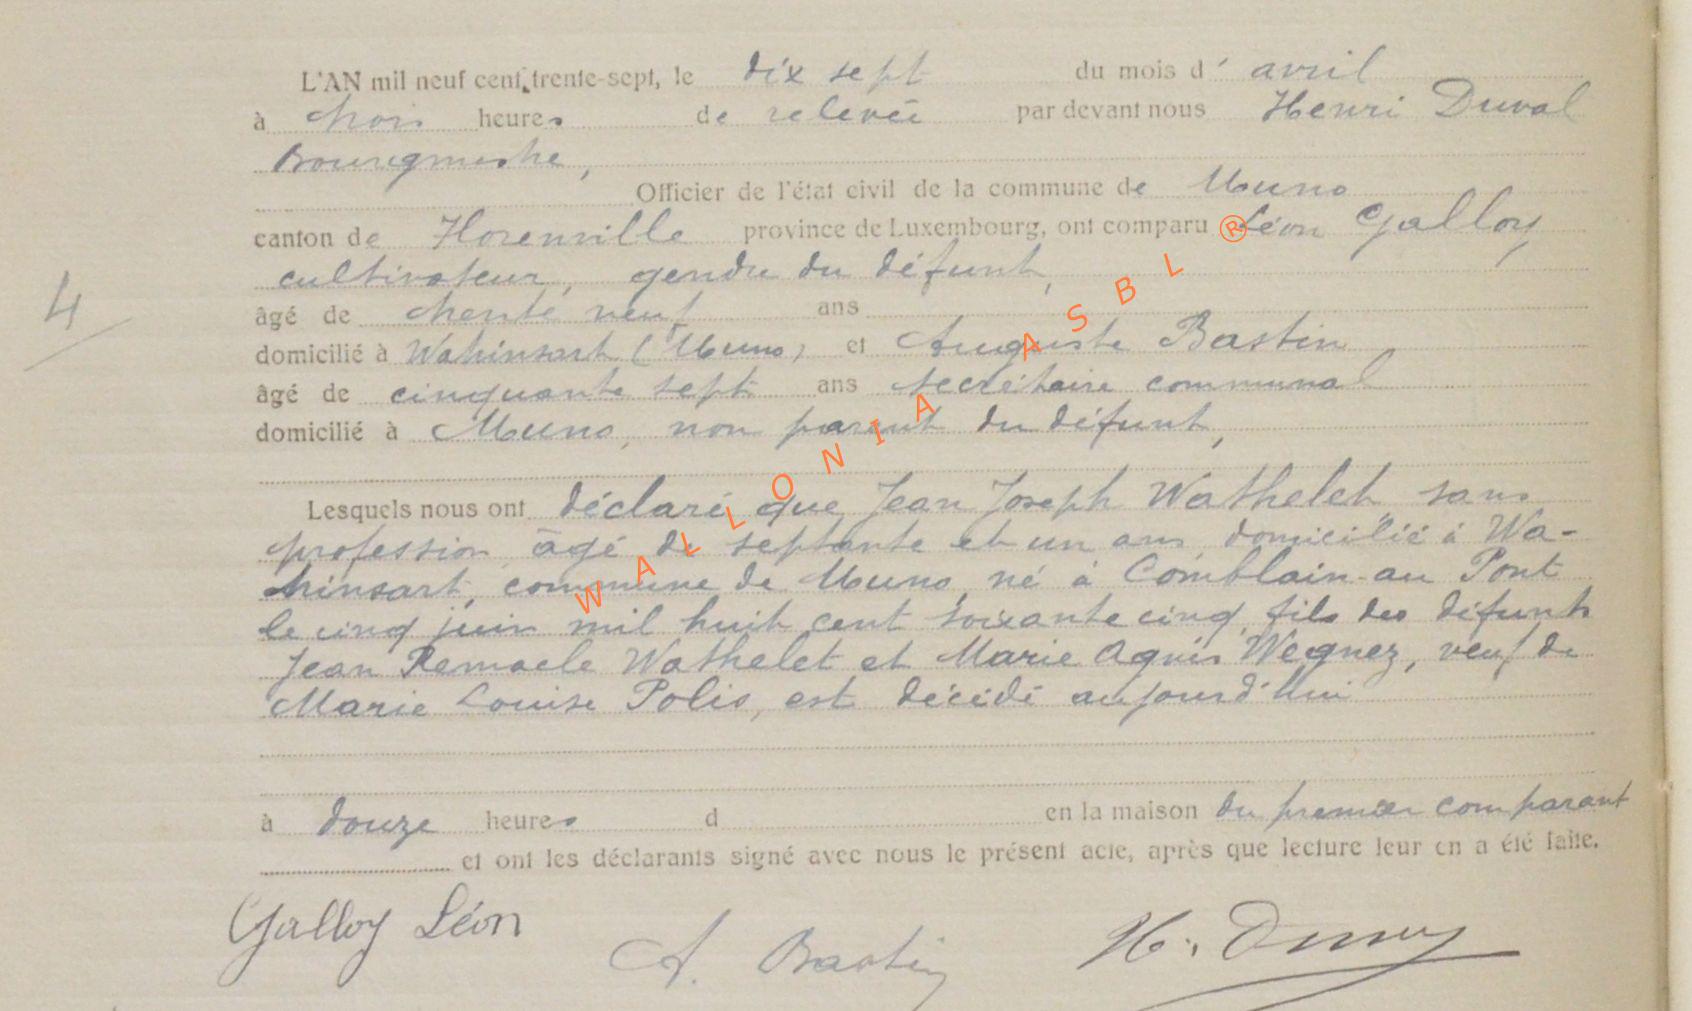 L'AN mil neuf cent trente-sept, le dix sept du mois d' avril
à trois heures de relevée par devant nous Henri Duval
Bourgmestre,
Officier de l'état civil de la commune de Muno
canton de Florenville province de Luxembourg, ont comparu Léon Galloy
cultivateur, gendre du défunt,
âgé de trente neuf ans
domicilié à Wahinsart (Muno) et Auguste Bastin
âgé de cinquante sept ans secrétaire communal
domicilié à Muno, non parent du défunt,
4
Lesquels nous ont déclaré que Jean Joseph Wathelet sans
profession âgé de septante et un ans domicilié à Wa-
hinsart, commune de Muno, né à Comblain-au Pont
le cinq juin mil huit cent soixante cinq, fils des défunts
Jean Remacle Wathelet et Marie Agnès Wegnez, veuf de
Marie Louise Polis, est décédé aujourd'hui
à douze heures d en la maison du premier comparant
et ont les déclarants signé avec nous le présent acte, après que lecture leur en a été faite.
Galloy Léon
A. Bastin
H. Duval
WALLONIA ASBL ®